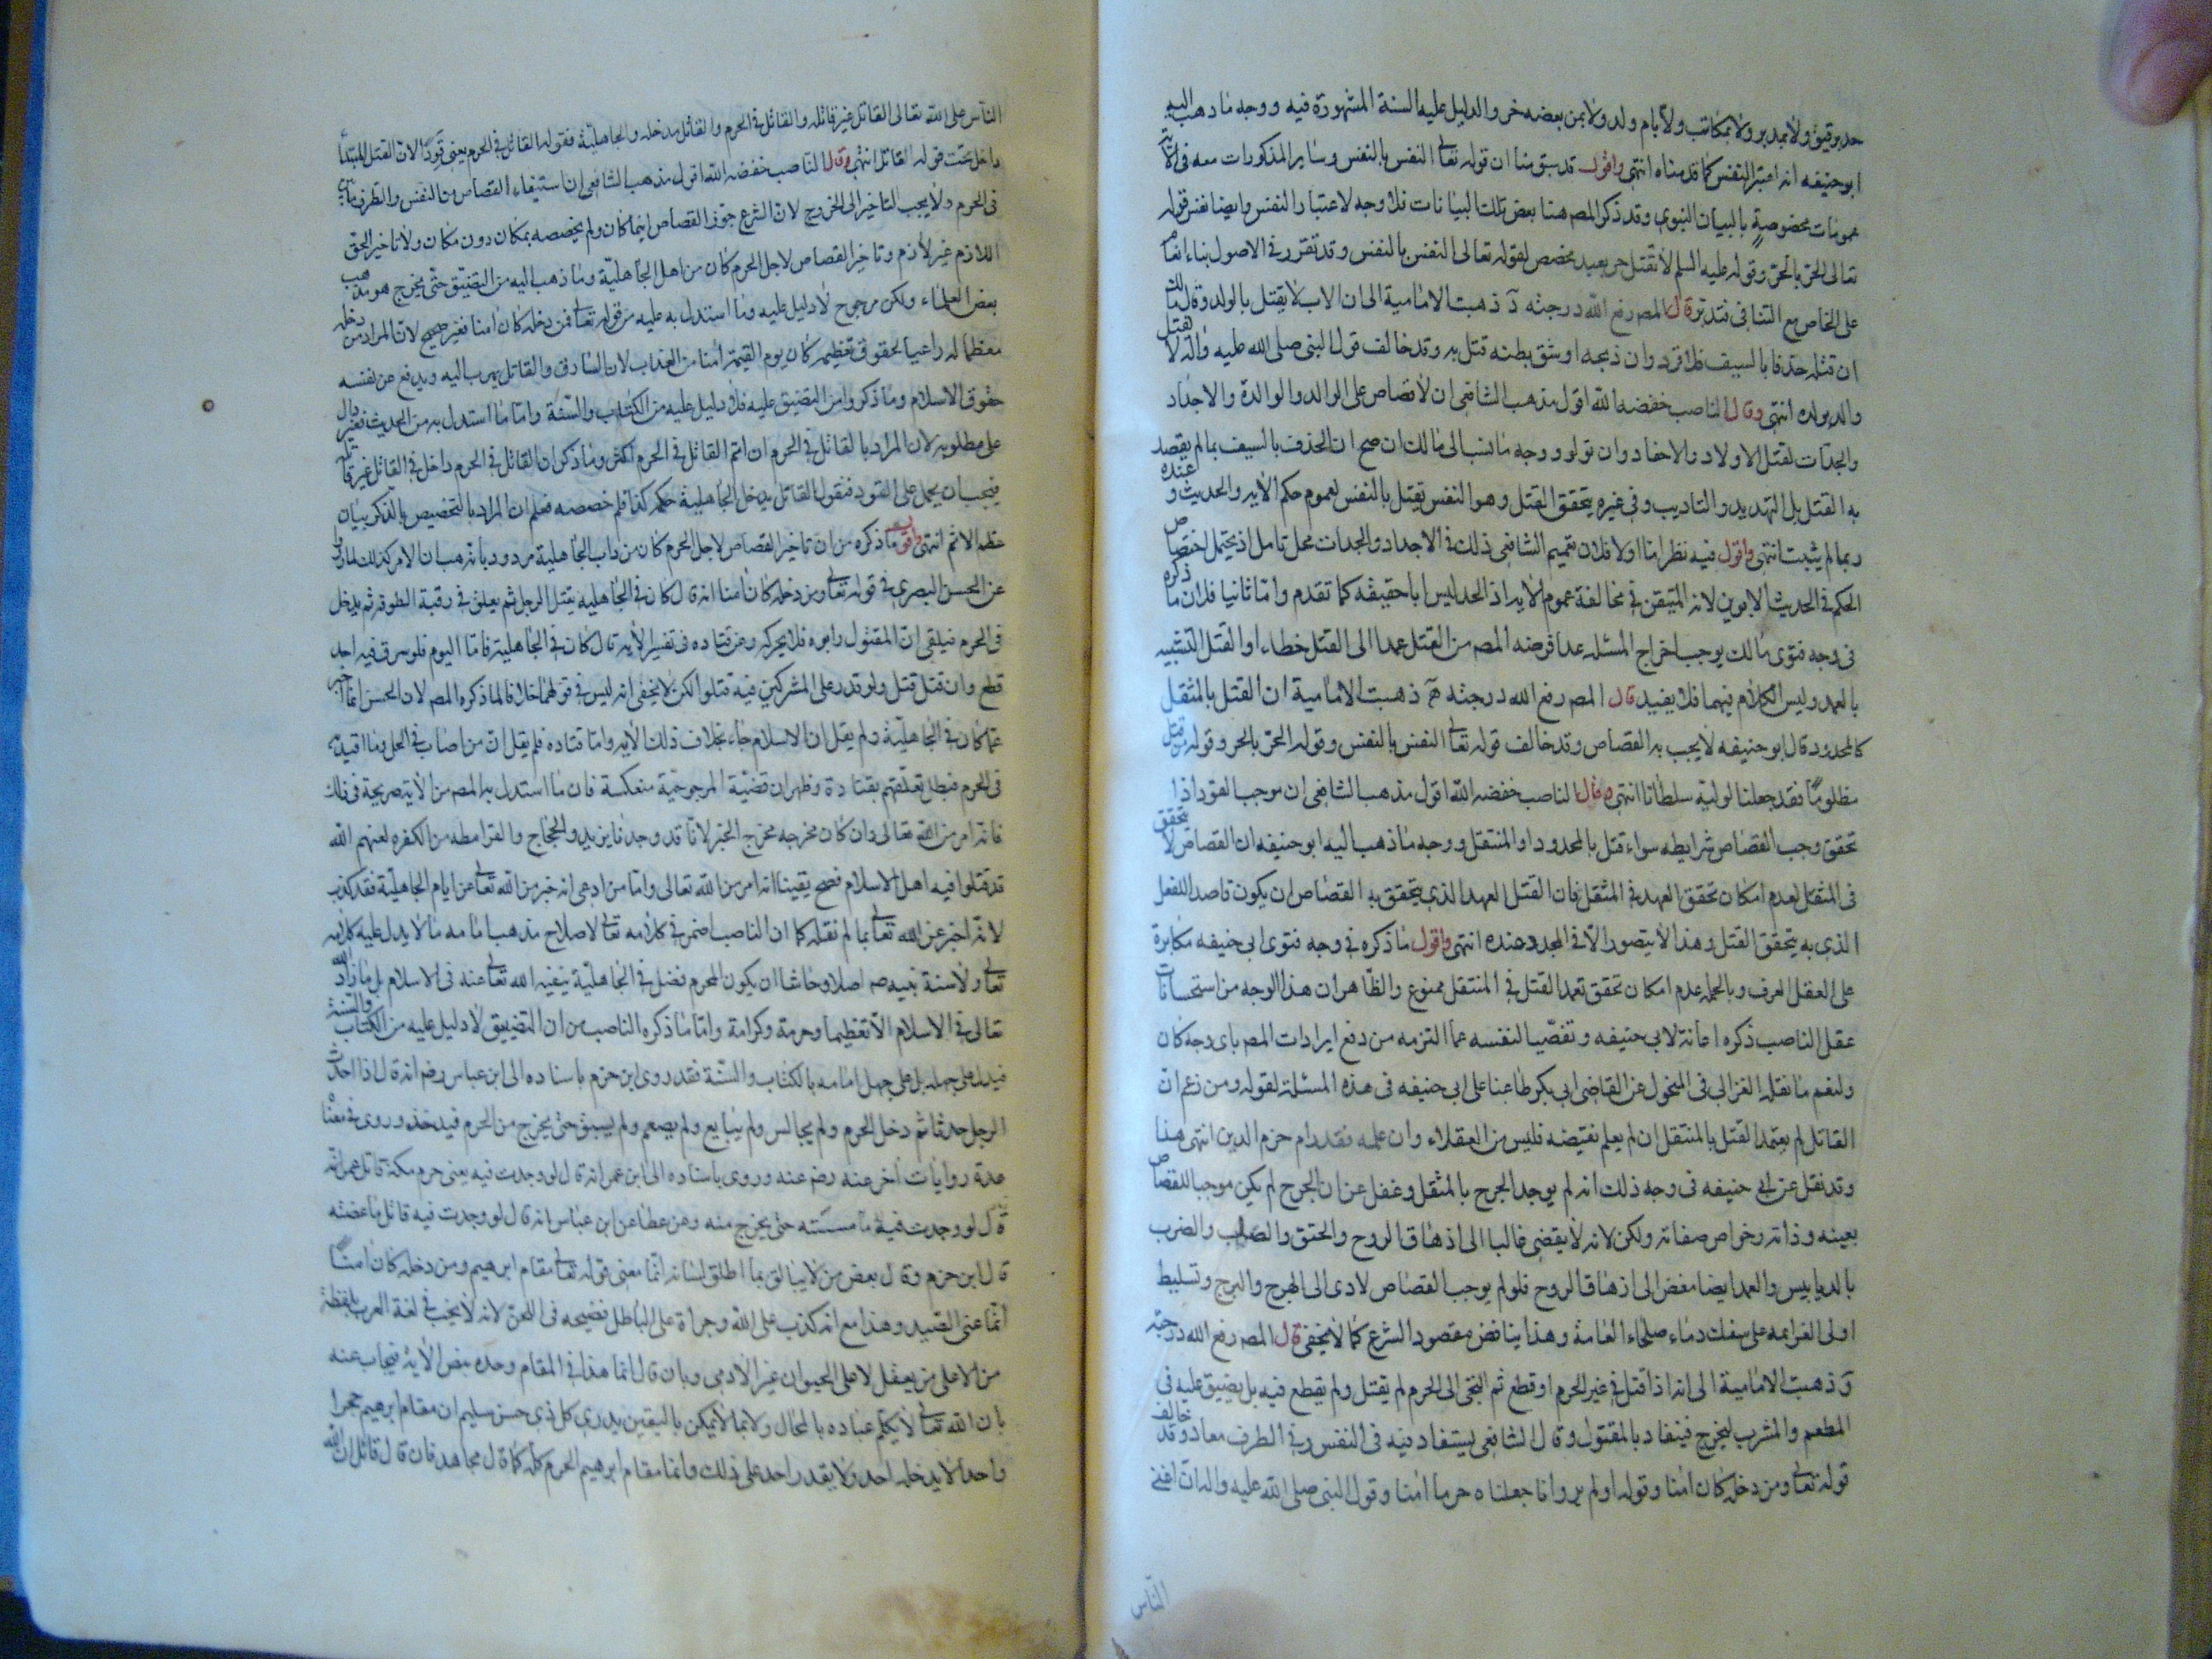 حد برقيق ولا بمدبر ولا بمكاتب ولا بام ولد ولا بمن بعضه حر والدليل عليه السنة المشهورة فيه ووجه ما ذهب اليه
ابو حنيفه انه اعتبر النفس كما قدمناه انتهى واقول قد سبق منا ان قوله تعالى النفس بالنفس وساير المذكورات معه فى الآية
عمومات مخصوصة بالبيان النبوى وقد ذكر المصه هنا بعض تلك البيانات فلا وجه لاعتبار النفس وايضا نفس قوله
تعالى الحر بالحر وقوله عليه السلم لا يقتل حر بعبد مخصص لقوله تعالى النفس بالنفس وقد تقرر فى الاصول بناء العام
على الخاص مع التنافى فتدبر قال المصه رفع الله درجته د ذهبت الامامية الى ان الاب لا يقتل بالولد وقال مالك
ان قتله حذفا بالسيف فلا قود وان ذبحه او شق بطنه قتل به وقد خالف قول النبى صلى الله عليه واله لا يقتل
والد بولده انتهى وقال الناصب خفضه الله اقول مذهب الشافعى ان لا قصاص على الوالد والوالدة والاجداد
والجدات لقتل الاولاد والاحفاد وان نولو ووجه ما نسب الى مالك ان صح ان الحذف بالسيف بما لم يقصد
به القتل بل التهديد والتاديب وفى غيره يتحقق القتل وهو النفس يقتل بالنفس لعموم حكم الايه والحديث عنده و
ربما لم يثبت انتهى واقول فيه نظر اما اولا فلان تعميم الشافعى ذلك فى الاجداد والجدات محل تامل اذ يحتمل اختصاص
الحكم فى الحديث الابوين لانه المتيقن فى مخالفة عموم الايه اذ الجد ليس ابا حقيقه كما تقدم واما ثانيا فلان ما ذكره
فى وجه فتوى مالك يوجب اخراج المسئله عما فرضه المصه من القتل عمدا الى القتل خطاء او القتل الشبيه
بالعمد وليس الكلام فيهما فلا يفيد قال المصه رفع الله درجته ه ذهبت الامامية ان القتل بالمثقل
كالمحدود قال ابو حنيفه لا يجب به القصاص وقد خالف قوله تعالى النفس بالنفس وقوله الحر بالحر وقوله من قتل
مظلوما فقد جعلنا لوليه سلطانا انتهى وقال الناصب خفضه الله اقول مذهب الشافعى ان موجب القود اذا
تحقق وجب القصاص بشرايطه سواء قتل بالمحدود او المثقل ووجه ما ذهب اليه ابو حنيفه ان القصاص لا يتحقق
فى المثقل لعدم امكان تحقق العمد فى المثقل فان القتل العمد الذى يتحقق به القصاص ان يكون قاصدا للفعل
الذى به يتحقق القتل وهذا لا يتصور الا فى المحدد عنده انتهى واقول ما ذكره فى وجه فتوى ابى حنيفه مكابرة
على العقل العرف وبالجمله عدم امكان تحقق تعمد القتل فى المثقل ممنوع والظاهر ان هذا الوجه من استحسانات
عقل الناصب ذكره اعانة لابى حنيفه وتفصيا لنفسه عما التزمه من دفع ايرادات المصه باى وجه كان
ولنعم ما نقله الغزالى فى المنخول عن القاضى ابى بكر طاعنا على ابى حنيفه فى هذه المسئلة لقوله ومن زعم ان
القاتل لم يعتمد القتل بالمثقل ان لم يعلم نقيضه فليس من العقلاء وان علمه فقد رام حزم الدين انتهى هذا
وقد نقل عن ابى حنيفه فى وجه ذلك انه لم يوجد الجرح بالمثقل وغفل عن ان الجرح لم يكن موجبا للقصاص
بعينه وذاته وخواص صفاته ولكن لانه لا يقضى غالبا الى اذهاق الروح والخنق والصلب والضرب
بالدبابيس والعمد ايضا مفض الى اذهاق الروح فلو لم يوجب القصاص لادى الى الهرج والمرج وتسليط
اولى الفراعمه على سفك دماء صلحاء العامة وهذا يناقض مقصود الشرع كما لا يخفى قال المصه رفع الله درجته
و ذهبت الامامية الى انه اذا قتل فى غير الحرم او قطع ثم التجى الى الحرم لم يقتل ولم يقطع فيه بل يضيق عليه فى
المطعم والمشرب ليخرج فيقاد بالمقتول وقال الشافعى يستقاد فيه فى النفس وفى الطرف معا وقد خالف
قوله تعالى ومن دخله كان امنا وقوله اولم يروا انا جعلناه حرما امنا وقول النبى صلى الله عليه واله ان اعتى
الناس
الناس على الله تعالى القاتل غير قاتله والقاتل فى الحرم والقاتل بدخل والجاهلية فقوله القاتل فى الحرم يعنى قودا لان القتل المبتدأ
داخل تحت قوله القاتل انتهى وقال الناصب خفضه الله اقول مذهب الشافعى ان استيفاء القصاص من النفس والطرف
فى الحرم ولا يجب التاخير الى الخروج لان الشرع جوز القصاص اينما كان ولم يخصصه بمكان دون مكان ولا تاخير الحق
اللازم غير لازم وتاخير القصاص لاجل الحرم كان من اهل الجاهلية وما ذهب اليه من التضييق حتى يخرج هو مذهب
بعض العلماء ولكن مرجوح لا دليل عليه وما استدل به عليه من قوله تعالى فمن دخله كان امنا فغير صحيح لان المراد من دخله
معظما له راعيا لحقوق تعظيمه كان يوم القيمة امنا من العذاب لان السارق والقاتل يهرب اليه ويدفع عن نفسه
حقوق الاسلام وما ذكروا من التضييق عليه فلا دليل عليه من الكتاب والسنة واما ما استدل به من الحديث فغير دال
على مطلوبه لان المراد بالقاتل فى الحرم ان اثم القاتل فى الحرم اكثر وما ذكر ان القاتل فى الحرم داخل فى القاتل غير قاتله
فيجب ان يحمل على القود فنقول القاتل بدخل الجاهلية حكمه كذا فلم خصصه فعلم ان المراد بالتخصيص بالذكر بيان
عظم الاثم انتهى واقول ما ذكره من ان تاخير القصاص لاجل الحرم كان من داب الجاهلية مردود بانه هب ان الامر كذلك لما روى
عن الحسن البصرى فى قوله تعالى ومن دخله كان امنا انه قال كان فى الجاهليه يقتل الرجل ثم يعلق فى رقبة الطوقه ثم يدخل
فى الحرم فيلقى ابن المقتول وابوه فلا يحركه وعن قتاده فى تفسير الايه قال كان فى الجاهلية فاما اليوم فلو سرق فيه احد
قطع وان قتل قتل ولو قدر على المشركين فيه قتلوا لكن لا يخفى انه ليس فى قولهما خلافا لما ذكره المصه لان الحسن انما اخبر
عما كان فى الجاهلية ولم يقل ان الاسلام جاء بخلاف ذلك الايه واما قتاده فلم يقل ان من اصاب فى الحل وما اقيد
فى الحرم فبطل تعلقهم بقتادة وظهر ان قضية المرجوحية منعكسة فان ما استدل به المصه من الاية صريحة فى ذلك
فانه امر من الله تعالى وان كان مخرجه مخرج الخبر لانا قد وجدنا يزيد والحجاج والقرامطه من الكفره لعنهم الله
قد قتلوا فيه اهل الاسلام فصح يقينا انه امر من الله تعالى واما من ادعى انه خبر من الله تعالى عن ايام الجاهلية فقد كذب
لانه اخبر عن الله تعالى بما لم نقله كما ان الناصب اضمر فى كلامه تعالى لاصلاح مذهب امامه ما لا يدل عليه كلامه
تعالى ولا سنة نبيه صه اصلا وحاشا ان يكون للحرم فضل فى الجاهلية ينفيه الله تعالى عنه فى الاسلام بل ما زاد الله
تعالى فى الاسلام الا تعظيما وحرمة وكرامة واما ما ذكره الناصب من ان التضييق لا دليل عليه من الكتاب والسنة
فيدل على جهله بل على جهل امامه بالكتاب والسنة فقد روى ابن حزم باسناده الى ابن عباس رضه انه قال اذا احدث
الرجل حدثا ثم دخل الحرم ولم يجالس ولم يبايع ولم يطعم ولم يسق حتى يخرج من الحرم فيؤخذ وروى فى معنا
عدة روايات اخر عنه رضه عنه وروى باسناده الى ابن عمر انه قال لو وجدت فيه يعنى حرم مكة قاتل عمر انه
قال لو وجدت فيه ما مسسته حتى يخرج منه وعن عطا عن ابن عباس انه قال لو وجدت فيه قاتل ما عضته
قال ابن حزم وقال بعض من لا يبالى بما اطلق لسانه انما معنى قوله تعالى مقام ابرهيم ومن دخله كان امنا
انما عنى الصيد وهذا مع انه كذب على الله وجراة على الباطل فضيحه فى اللحن لانه لا يخب فى لغة العرب بلفظة
من الا على من يعقل لا على الحيوان غير الادمى وبان قال انما هذا فى المقام وحده بنص الاية فيجاب عنه
بان الله تعالى لا يكلم عباده بالمحال ولا بما لا يمكن باليقين يدرى كل ذى حس سليم ان مقام ابرهيم حجرا
واحدا لا يدخله احد ولا يقدر احد على ذلك وانما مقام ابرهيم الحرم كله كما قال مجاهد فان قال قائل ان الله